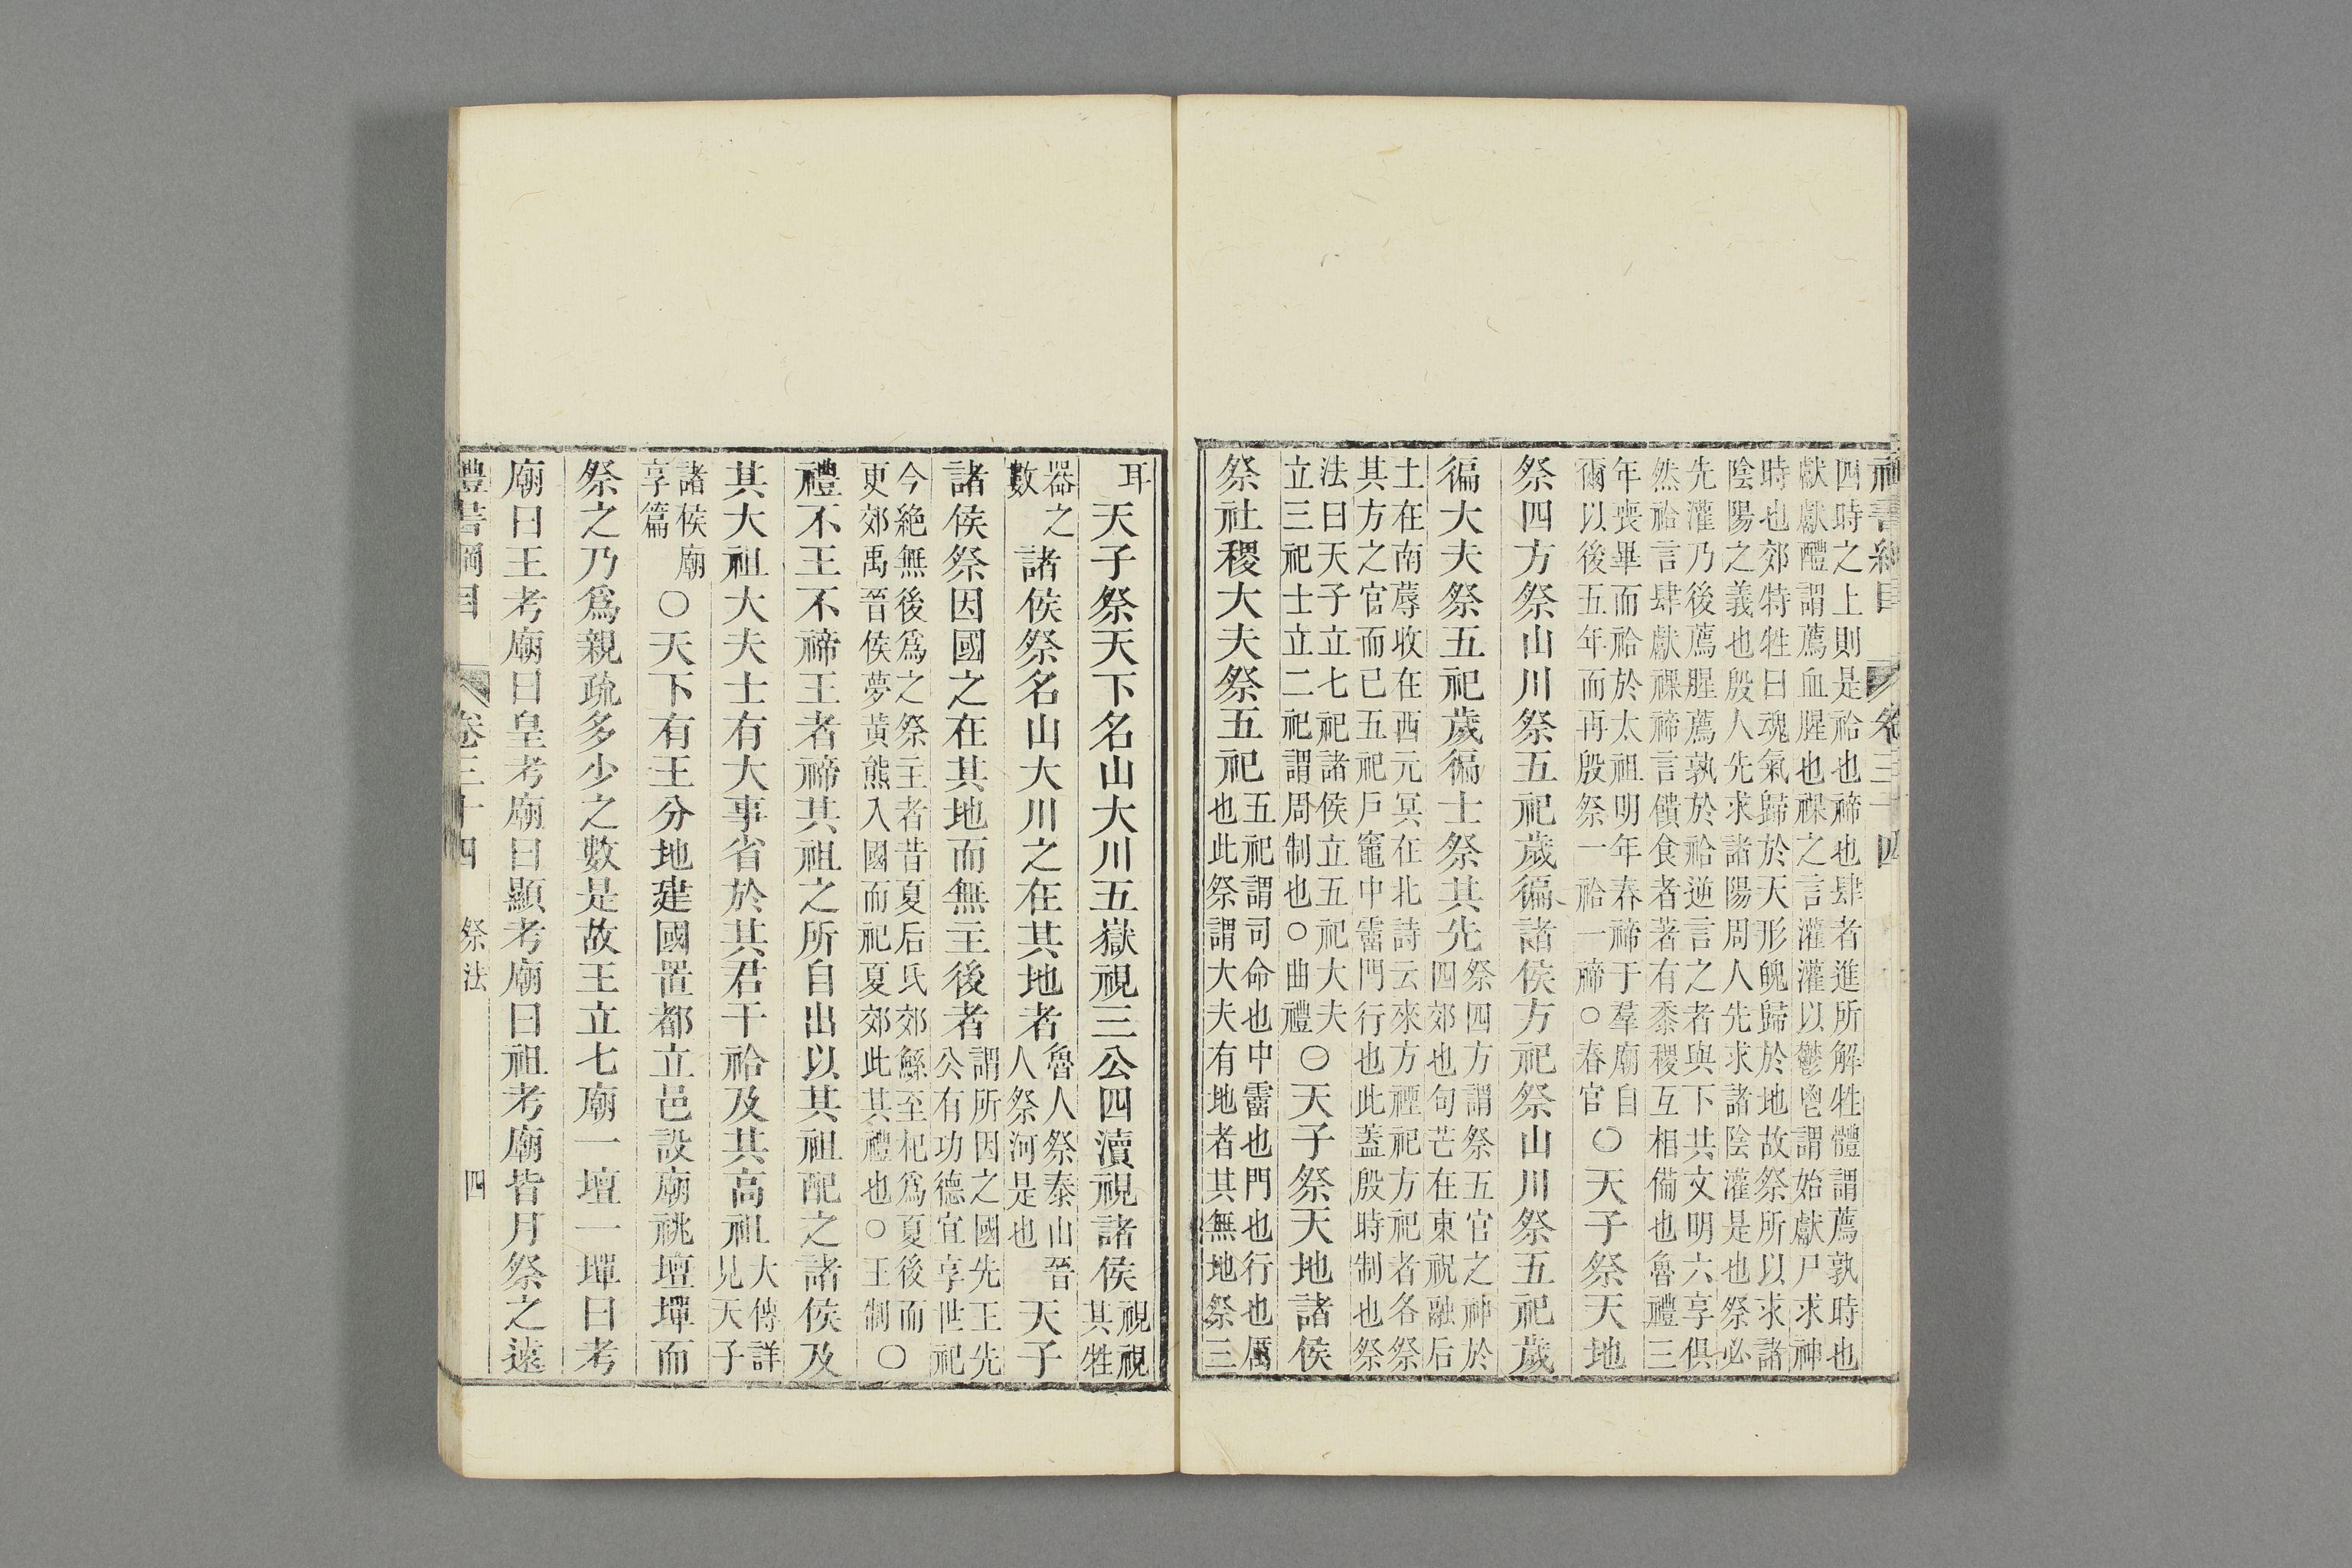 禮書綱目 卷三十四
四時之上則是祫也禘也肆者進所解牲體謂薦孰時也
獻獻醴謂薦血腥也祼之言灌灌以鬱鬯謂始獻尸求神
時也郊特牲曰魂氣歸於天形魄歸於地故祭所以求諸
陰陽之義也殷人先求諸陽周人先求諸陰灌是也祭必
先灌乃後薦腥薦孰於祫逆言之者與下共文明六享俱
然祫言肆獻祼禘言饋食者著有黍稷互相備也魯禮三
年喪畢而祫於太祖明年春禘于羣廟自
爾以後五年而再殷祭一祫一禘○春官
○天子祭天地
祭四方祭山川祭五祀歲徧諸侯方祀祭山川祭五祀歲
徧大夫祭五祀歲徧士祭其先
祭四方謂祭五官之神於
四郊也句芒在東祝融后
土在南蓐收在西元冥在北詩云來方禋祀方祀者各祭
其方之官而已五祀戶竈中霤門行也此蓋殷時制也祭
法曰天子立七祀諸侯立五祀大夫
立三祀士立二祀謂周制也○曲禮
○天子祭天地諸侯
祭社稷大夫祭五祀
五祀謂司命也中霤也門也行也厲
也此祭謂大夫有地者其無地祭三
耳
天子祭天下名山大川五嶽視三公四瀆視諸侯
視視
其牲
器之
數
諸侯祭名山大川之在其地者
魯人祭泰山晉
人祭河是也
天子
諸侯祭因國之在其地而無主後者
謂所因之國先王先
公有功德宜享世祀
今絶無後爲之祭主者昔夏后氏郊鯀至杞爲夏後而
更郊禹晉侯夢黃熊入國而祀夏郊此其禮也○王制
○
禮不王不禘王者禘其祖之所自出以其祖配之諸侯及
其大祖大夫士有大事省於其君干祫及其高祖
大傳詳
見天子
諸侯廟
享篇
○天下有王分地建國置都立邑設廟祧壇墠而
祭之乃爲親疏多少之數是故王立七廟一壇一墠曰考
廟曰王考廟曰皇考廟曰顯考廟曰祖考廟皆月祭之遠
禮書綱目 卷三十四 祭法 四